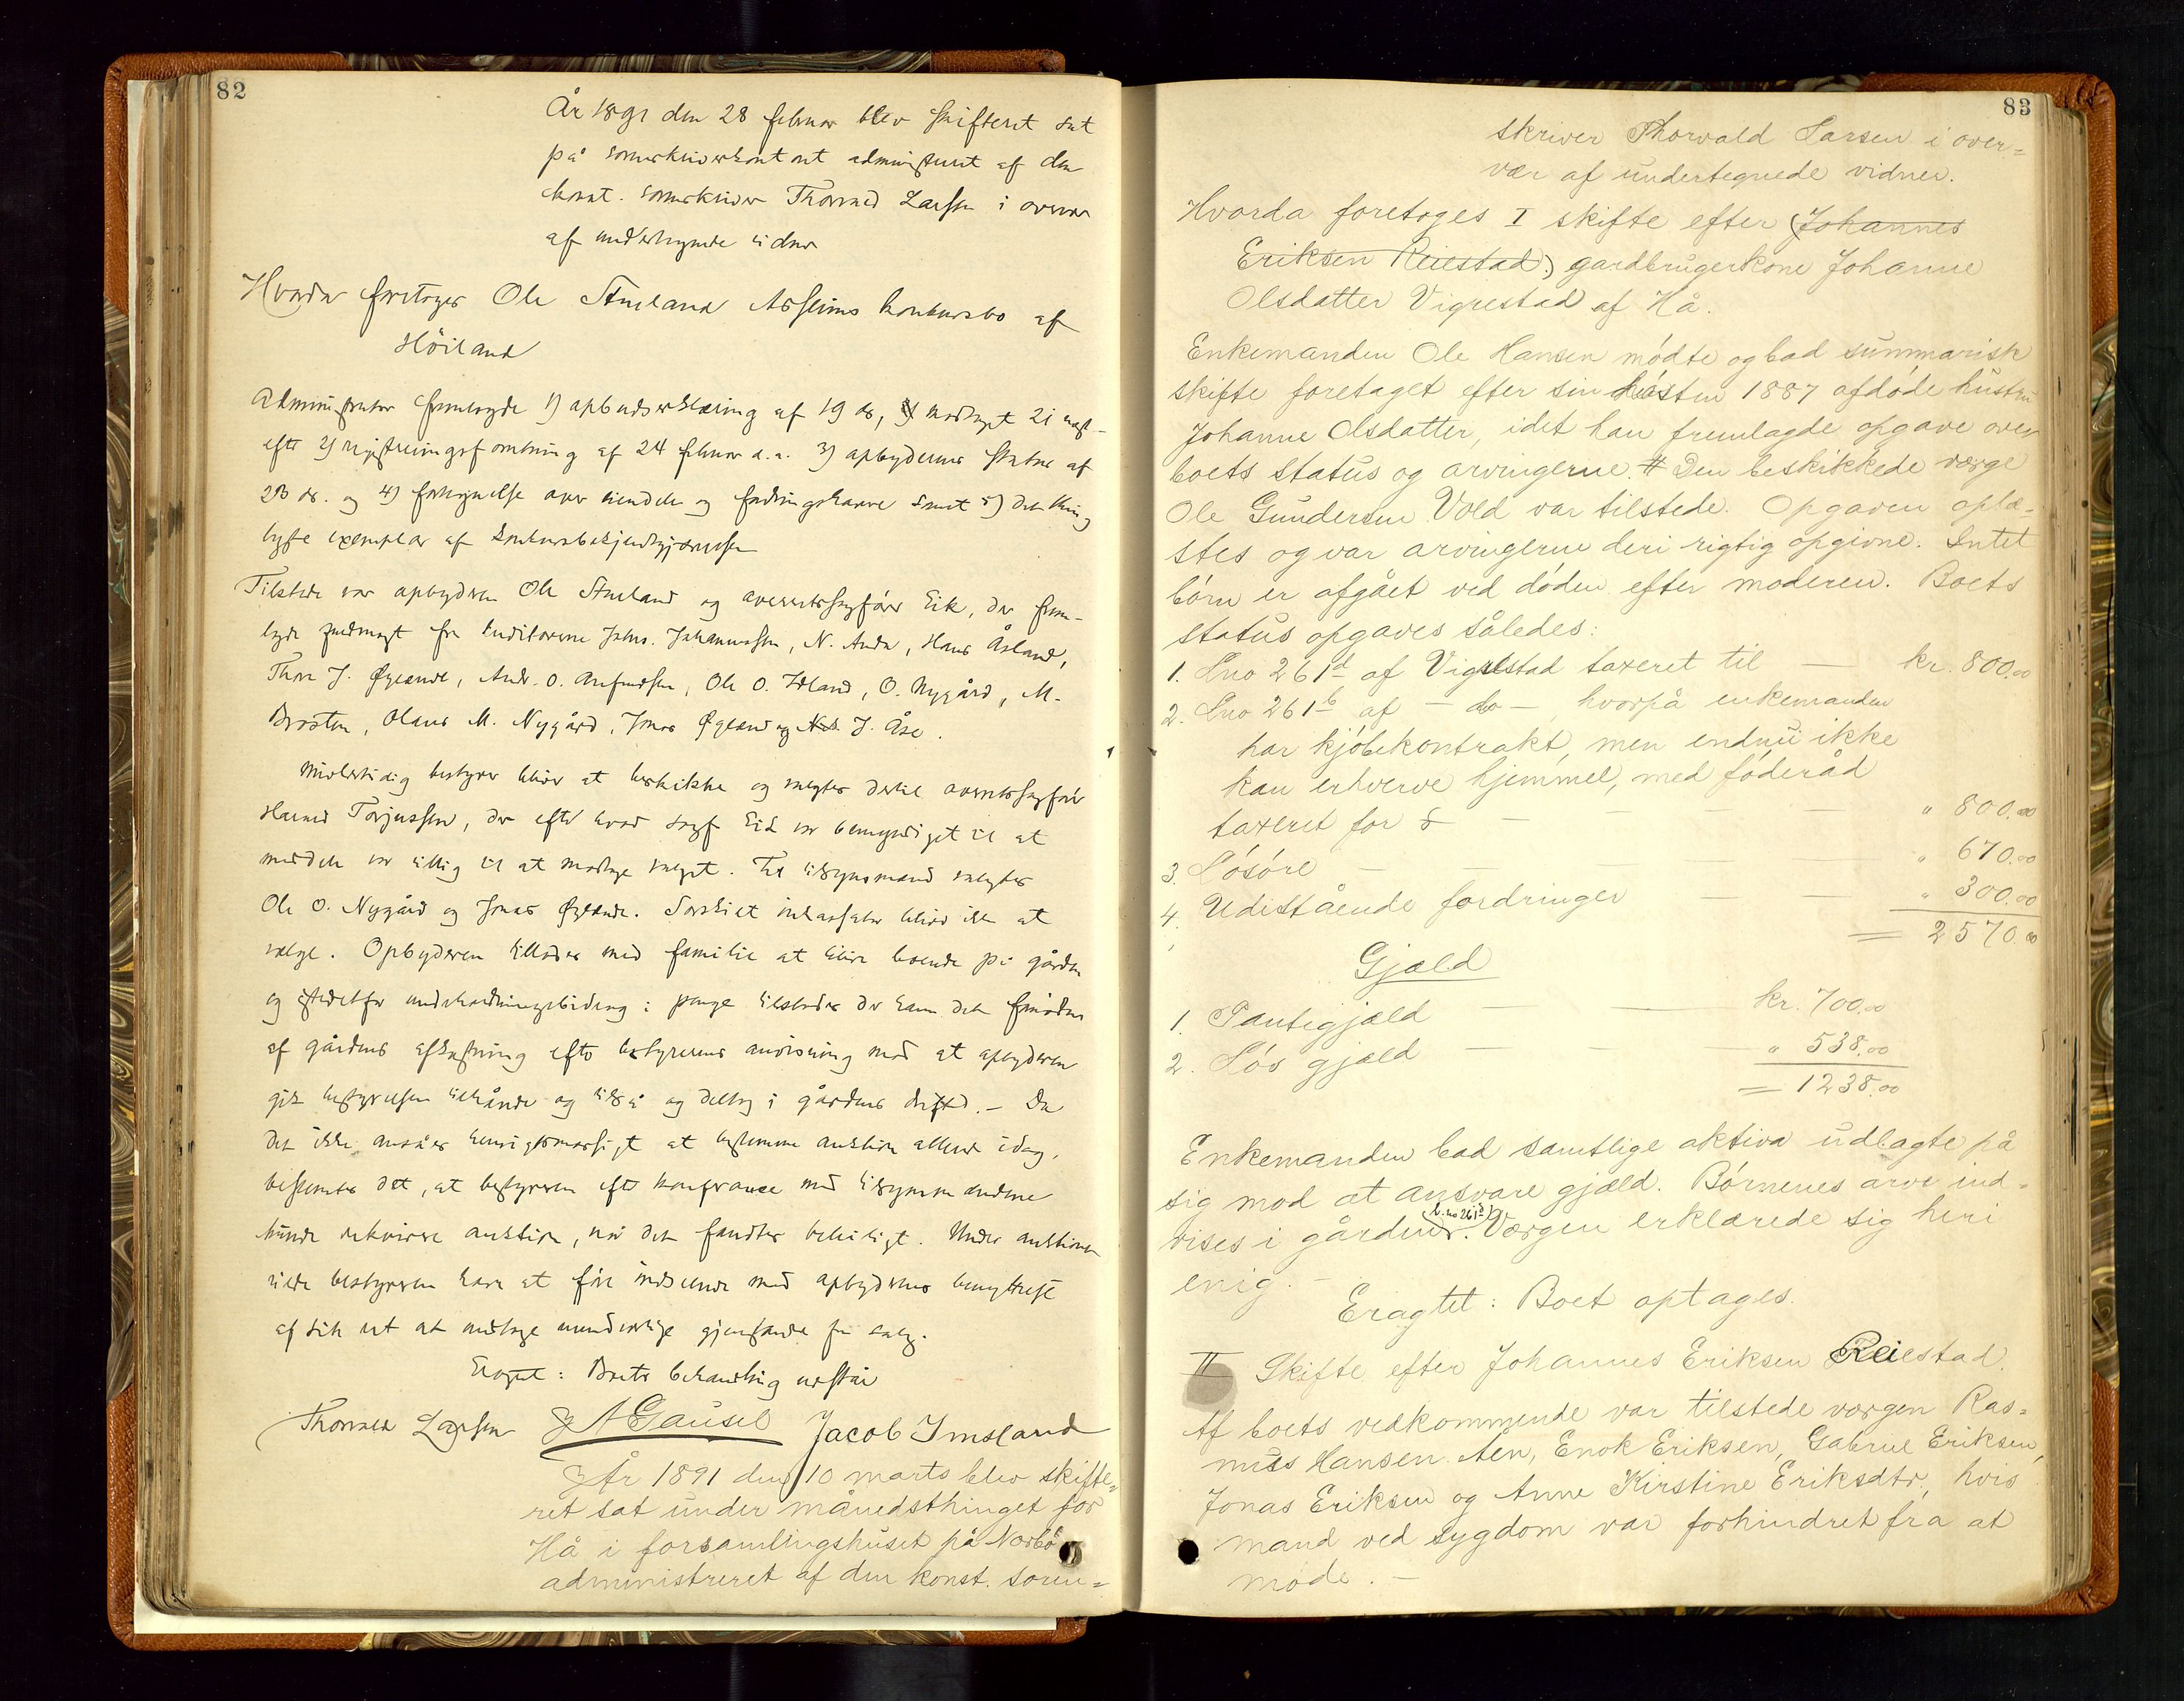 82
År 1891 den 28 februar blev skifteret sat
på sorenskriverkontoret administreret af den
konst. sorenskriver Thorvald Larsen i overvær
af undertegnede vidner
Hvorda foretoges Ole Stueland Arsheims konkursbo af
Höiland
Administrator fremlagde 1) opbudserklæring af 19 ds, modtaget 21 næst-
efter 2) registreringsforretning af 24 februar d.a. 3) opbyderens status af
28 ds. og 4) fortegnelse over eiendele og samt 5) det thing
lyste exemplar af konkursbekjendtgjørelsen
Tilstede var opbyderen Ole Stueland og overretssagfører Eik, der frem-
lagde fuldmagt fra kreditorerne Johs. Johannessen, N. Anda, Hans Åsland,
Thore J. Øglænd, Andr. O. Ole O. O. Nygård, M.
Brosten, Olaus M. Nygård, Jonas Øglænd og J. Åse.
Midlertidig bestyrer blev at beskikke og valgtes dertil overretssagfører
Harald Torjussen, der efter hvad sagf Eik var bemyndiget til at
meddele var villig til at modtage valget. Til tilsynsmænd valgtes
Ole O. Nygård og Jonas Øglænd. Særskilt inkassator blev ikke at
vælge. Opbyderen tillodes med familie at blive boende på gården
og istedetfor underholdningsbidrag i penge tilstodes der ham det fornødne
af gårdens afkastning efter bestyrerens anvisning mod at opbyderen
gik bestyrelsen tilhånde og tilså og deltog i gårdens drift. – Da
det ikke ansåes hensigtsmæssigt at bestemme auktion allerede idag,
bestemtes det, at bestyreren efter konferance med tilsynsmændene
kunde rekvirere auktion, når det fandtes beleiligt. Under auktionen
vilde bestyreren have at føre indseende med opbyderens benyttelse
af sin ret at undtage uundværlige gjenstande fra salg.
Eragtet: Boets behandling udstår
Thorvald Larsen A Gausel Jacob Imsland
År 1891 den 10 marts blev skifte-
ret sat under månedsthinget for
Hå i forsamlingshuset på Nærbø
administreret af den konst. soren=
83
skriver Thorvald Larsen i over=
vær af undertegnede vidner.
Hvorda foretoges I skifte efter (Johannes
Eriksen Reiestad) gardbrugerkone Johanne
Olsdatter Vigrestad af Hå.
Enkemanden Ole Hansen mødte og bad summarisk
skifte foretaget efter sin høsten 1887 afdøde hustru
Johanne Olsdatter, idet han fremlagde opgave over
boets status og arvingerne. # Den beskikkede værge
Ole Gundersen Vold var tilstede. Opgaven oplæ-
stes og var arvingerne deri rigtig opgivne. Intet
børn er afgået ved døden efter moderen. Boets
status opgaves således:
1. Lno 261d af Vigrestad taxeret til — kr. 800.00
2. Lno 261b af – do –, hvorpå enkemanden
har kjøbekontrakt, men endnu ikke
kan erhverve hjemmel, med føderåd
taxeret for — " 800.00
3. Løsøre — " 670.00
4. Udistående fordringer — " 300.00
= 2570.00
Gjæld
1. Pantegjæld — kr. 700.00
2. Løs gjæld — " 538.00
= 1238.00
Enkemanden bad samtlige aktiva udlagte på
sig mod at ansvare gjæld. Børnenes arve ind-
(l.no 261d)
vises i gården. Værgen erklærede sig heri
enig. –
Eragtet: Boet optages.
II Skifte efter Johannes Eriksen Reiestad.
Af boets vedkommende var tilstede værgen Ras=
mus Hansen Aen, Enok Eriksen, Gabriel Eriksen,
Jonas Eriksen og Anne Kirstine Eriksdtr., hvis
mand ved sygdom var forhindret fra at
møde. –